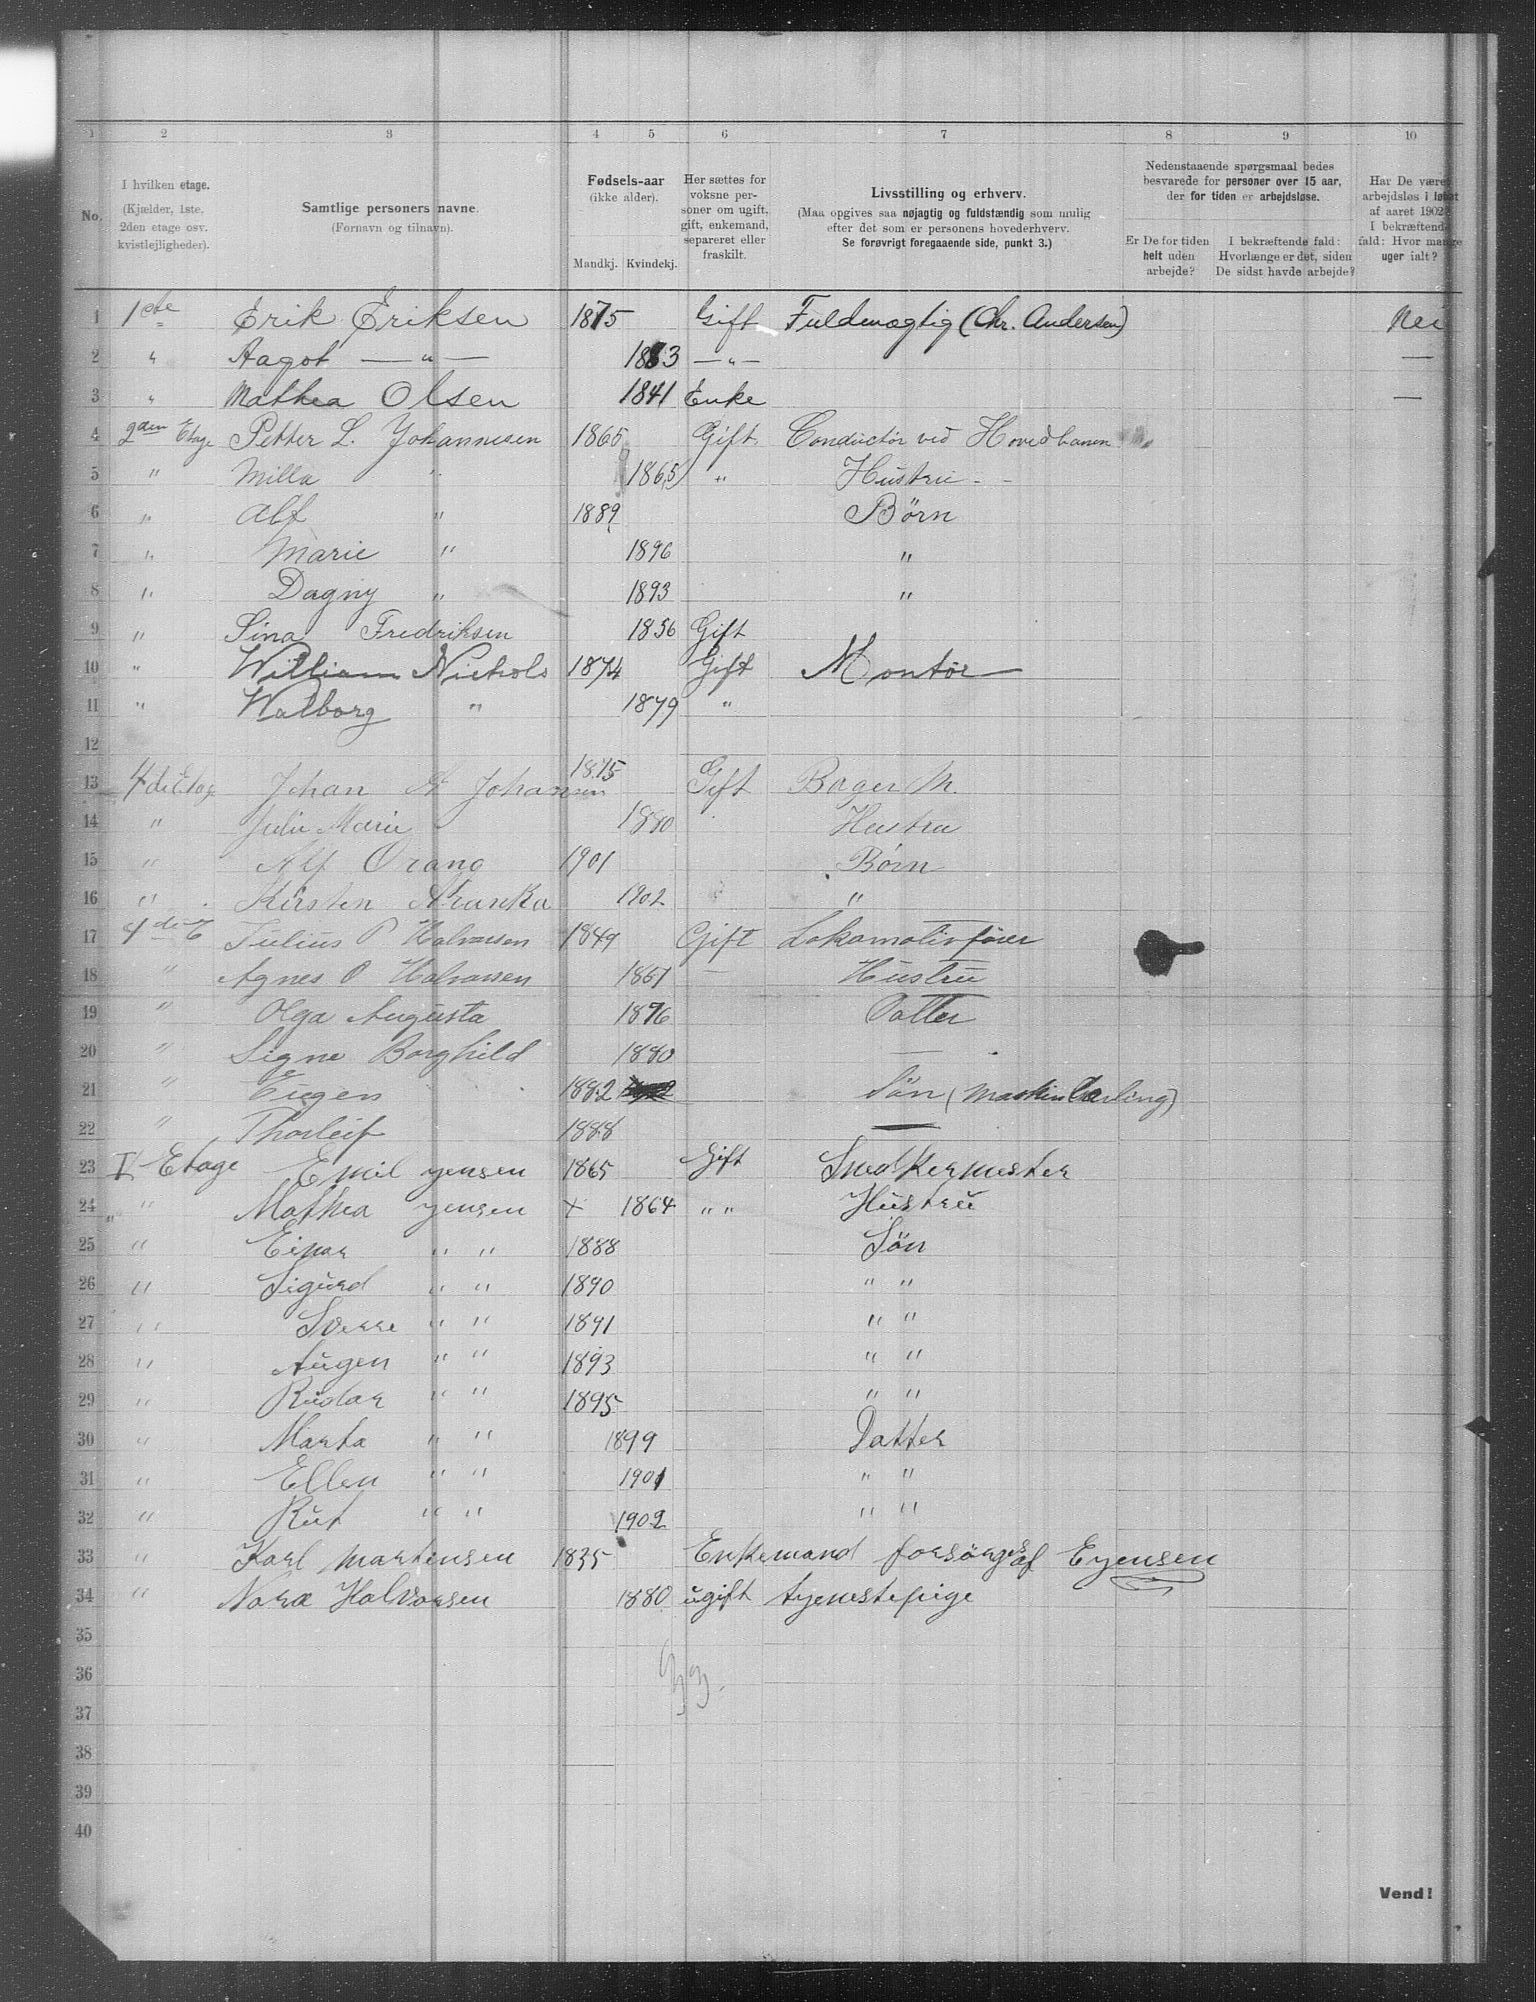 1 2 3 4 5 6 7 8 9 10
No.
I hvilken etage.
(Kjælder, 1ste, 2den etage osv. kvistlejligheder).
Samtlige personers navne.
(Fornavn og tilnavn).
Fødsels-aar
(ikke alder).
Mandkj. Kvindekj.
Her sættes for voksne personer om ugift, gift, enkemand, separeret eller fraskilt.
Livsstilling og erhverv.
(Maa opgives saa nøjagtig og fuldstændig som mulig
efter det som er personens hovederhverv.
Se forøvrigt foregaaende side, punkt 3.)
Nedenstaaende spørgsmaal bedes
besvarede for personer over 15 aar,
der for tiden er arbejdsløse.
Er De for tiden helt uden arbejde?
I bekræftende fald: Hvorlænge er det, siden De sidst havde arbejde?
Har De været arbejdsløs i løbet af aaret 1902? I bekræftende fald: Hvor mange uger ialt?
1 1ste Erik Eriksen 1875 Gift Fuldmægtig (Chr. Andersen) Nei
2 " Aagot — " — 1883 — " — —
3 " Mathea Olsen 1841 Enke —
4 2den Etage Petter L. Johannesen 1865 Gift Conductör ved Hovedbanen
5 " Milla " 1865 " Hustru - -
6 " Alf " 1889 Børn
7 " Marie " 1896 "
8 " Dagny " 1893 "
9 " Sina Fredriksen 1856 Gift
10 " William Nichols 1874 Gift Montör
11 " Walborg " 1879 "
12
13 4de Etag. Johan A Johansen 1875 Gift Bager M.
14 " Julie Marie 1880 Hustru
15 " Alf 1901 Børn
16 " Kirsten 1902 "
17 4de E Julius P Halvorsen 1849 Gift Lokomotivfører
18 " Agnes O Halvorsen 1851 — Hustru
19 " Olga Augusta 1876 Datter
20 " Signe Borghild 1880 —
21 " Eugen 1882 Sön (Maskinlærling)
22 " Thorleif 1888 —
23 V Etage Emil yensen 1865 Gift Snedkermester
24 " Mathea yensen + 1864 " " Hüstrü
25 " Einar " " 1888 Sön
26 " Sigurd " " 1890 " "
27 " Sverre " " 1891 " "
28 " Augen " " 1893 " "
29 " Rüdar " " 1895 " "
30 " Marta " " 1899 Datter
31 " Ellen " " 1901 " "
32 " Rüt " " 1902 " "
33 " Karl Martinsen 1835 Enkemand forsørges af Eyensen
34 " Nora Halvorsen 1880 ugift tyenestepige
35
36
37
38
39
40
33.
Vend!